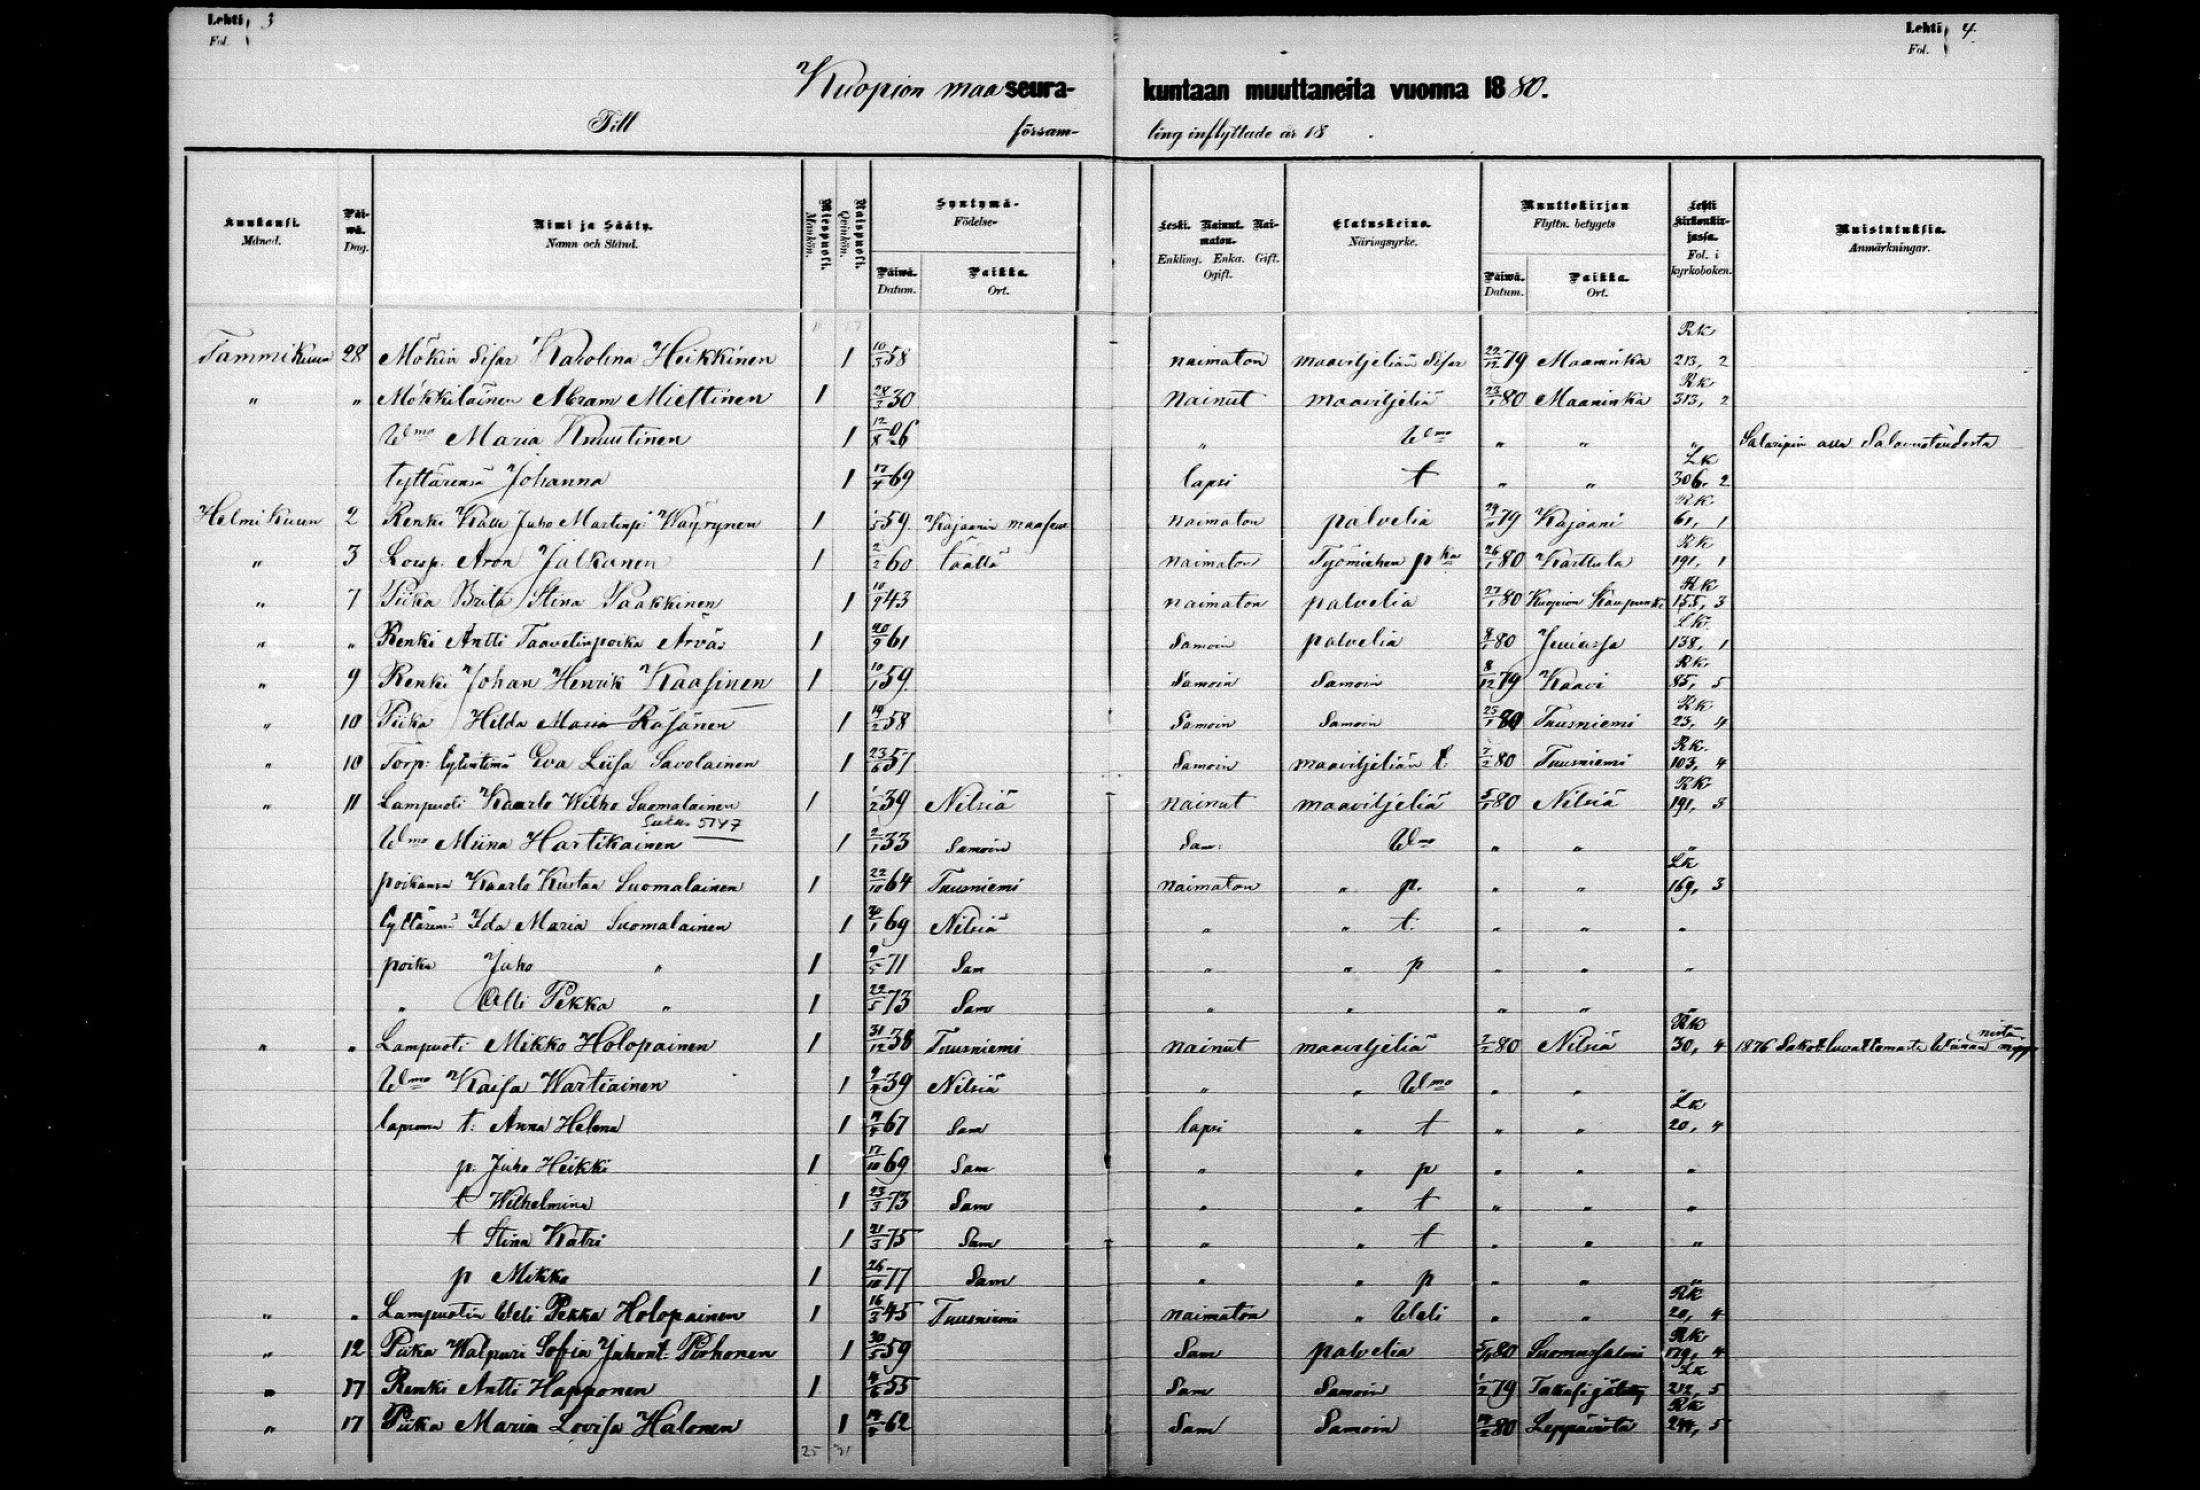 Lehti 3
Fol.
Lehti 4
Fol.
Kuopion maa seura- kuntaan muuttaneita vuonna 1880.
Till försam- ling inflyttade år 18 .
Kuukausi. Månad. Päi-wä. Dag. Nimi ja Sääty. Namn och Stånd. Miespuoli. Mankön. Naispuoli. Qvinkön. Syntymä- Födelse- Päiwä. Datum. Paikka. Ort. Leski. Nainut. Nai-maton. Enkling. Enka. Gift. Ogift. Elatuskeino. Näringsyrke. Muuttokirjan Flyttn. betygets Päiwä. Datum. Paikka. Ort. Lehti kirkonkir-jassa. Fol. i kyrkoboken. Muistutuksia. Anmärkningar.
Tammikuun 28 Mökin Sisar Karolina Heikkinen 1 10/3 58 naimaton maaviljeliän Sisar 22/12 79 Maaninka Rk 213, 2
" " Mökkiläinen Abram Miettinen 1 28/3 30 Nainut maaviljeliä 23/1 80 Maaninka Rk 313, 2
Wmo Maria Knuutinen 1 12/8 26 " Wmo " " "
tyttärensä Johanna 1 17/4 69 lapsi t " " Lk 306. 2
Helmikuun 2 Renki Kalle Juho Martinp: Wäyrynen 1 1/5 59 Kajaanin maaseur naimaton palvelia 29/11 79 Kajaani Rk. 61, 1
" 3 Loisp. Aron Jalkanen 1 2/2 60 täällä naimaton Työmiehen pka 26/1 80 Karttula Rk 191, 1
" 7 Piika Brita Stina Paakkinen 1 10/9 43 naimaton palvelia 27/1 80 Kuopion Kaupunki Rk 155, 3
" " Renki Antti Taavetinpoika Arvas 1 20/9 61 Samoin palvelia 8/1 80 Lk. 138, 1
" 9 Renki Johan Henrik Kaasinen 1 10/1 59 Samoin Samoin 8/12 79 Kaavi Rk. 85, 5
" 10 Piika Hilda Maria Räsänen 1 19/2 58 Samoin Samoin 25/1 80 Tuusniemi Rk 23, 4
" 10 Torp: tytintimä Eva Liisa Savolainen 1 23/6 57 Samoin maaviljeliän t. 7/2 80 Tuusniemi Rk. 103, 4
" 11 Lampuoti Kaarlo Wilho Suomalainen 1 1/2 39 Nilsiä nainut maaviljeliä 5/1 80 Nilsiä Rk 191, 3
5147
Wmo Miina Hartikainen 1 2/1 33 Samoin Sam: Wmo " " "
poikansa Kaarlo Kustaa Suomalainen 1 22/10 64 Tuusniemi naimaton " p. " " Lk 169, 3
tyttärensä Ida Maria Suomalainen 1 20/1 69 Nilsiä " " t. " " "
poika Juho " 1 9/5 71 Sam " " p " " "
" Olli Pekka " 1 22/5 73 Sam " " " " "
" " Lampuoti Mikko Holopainen 1 31/12 38 Tuusniemi nainut maaviljeliä 2/2 80 Nilsiä Rk 30, 4 1876 Sakot. luvattomasta Wiinan
Wmo Kaisa Wartiainen 1 9/4 39 Nilsiä " " Wmo " " "
lapsensa t: Anna Helena 1 19/4 67 Sam lapsi " t " " Lk 20, 4
p. Juho Heikki 1 17/10 69 Sam " " p " " "
t Wilhelmina 1 23/3 73 Sam " " t " " "
t Stina Katri 1 21/3 75 Sam " " t " " "
p Mikko 1 26/10 77 Sam " " p " " "
" " Lampuotin Weli Pekka Holopainen 1 16/3 45 Tuusniemi naimaton " Weli " " Rk 20, 4
" 12 Piika Walpuri Sofia Juhont: Pirhonen 1 30/5 59 Sam palvelia 5/1 80 Suomussalmi Rk. 179, 4
" 17 Renki Antti Happonen 1 4/6 55 Sam Samoin 1/2 79 Lk 212, 5
" 17 Piika Maria Lovisa Halonen 1 14/4 62 Sam Samoin 14/2 80 Leppävirta Rk 244, 5
25 31